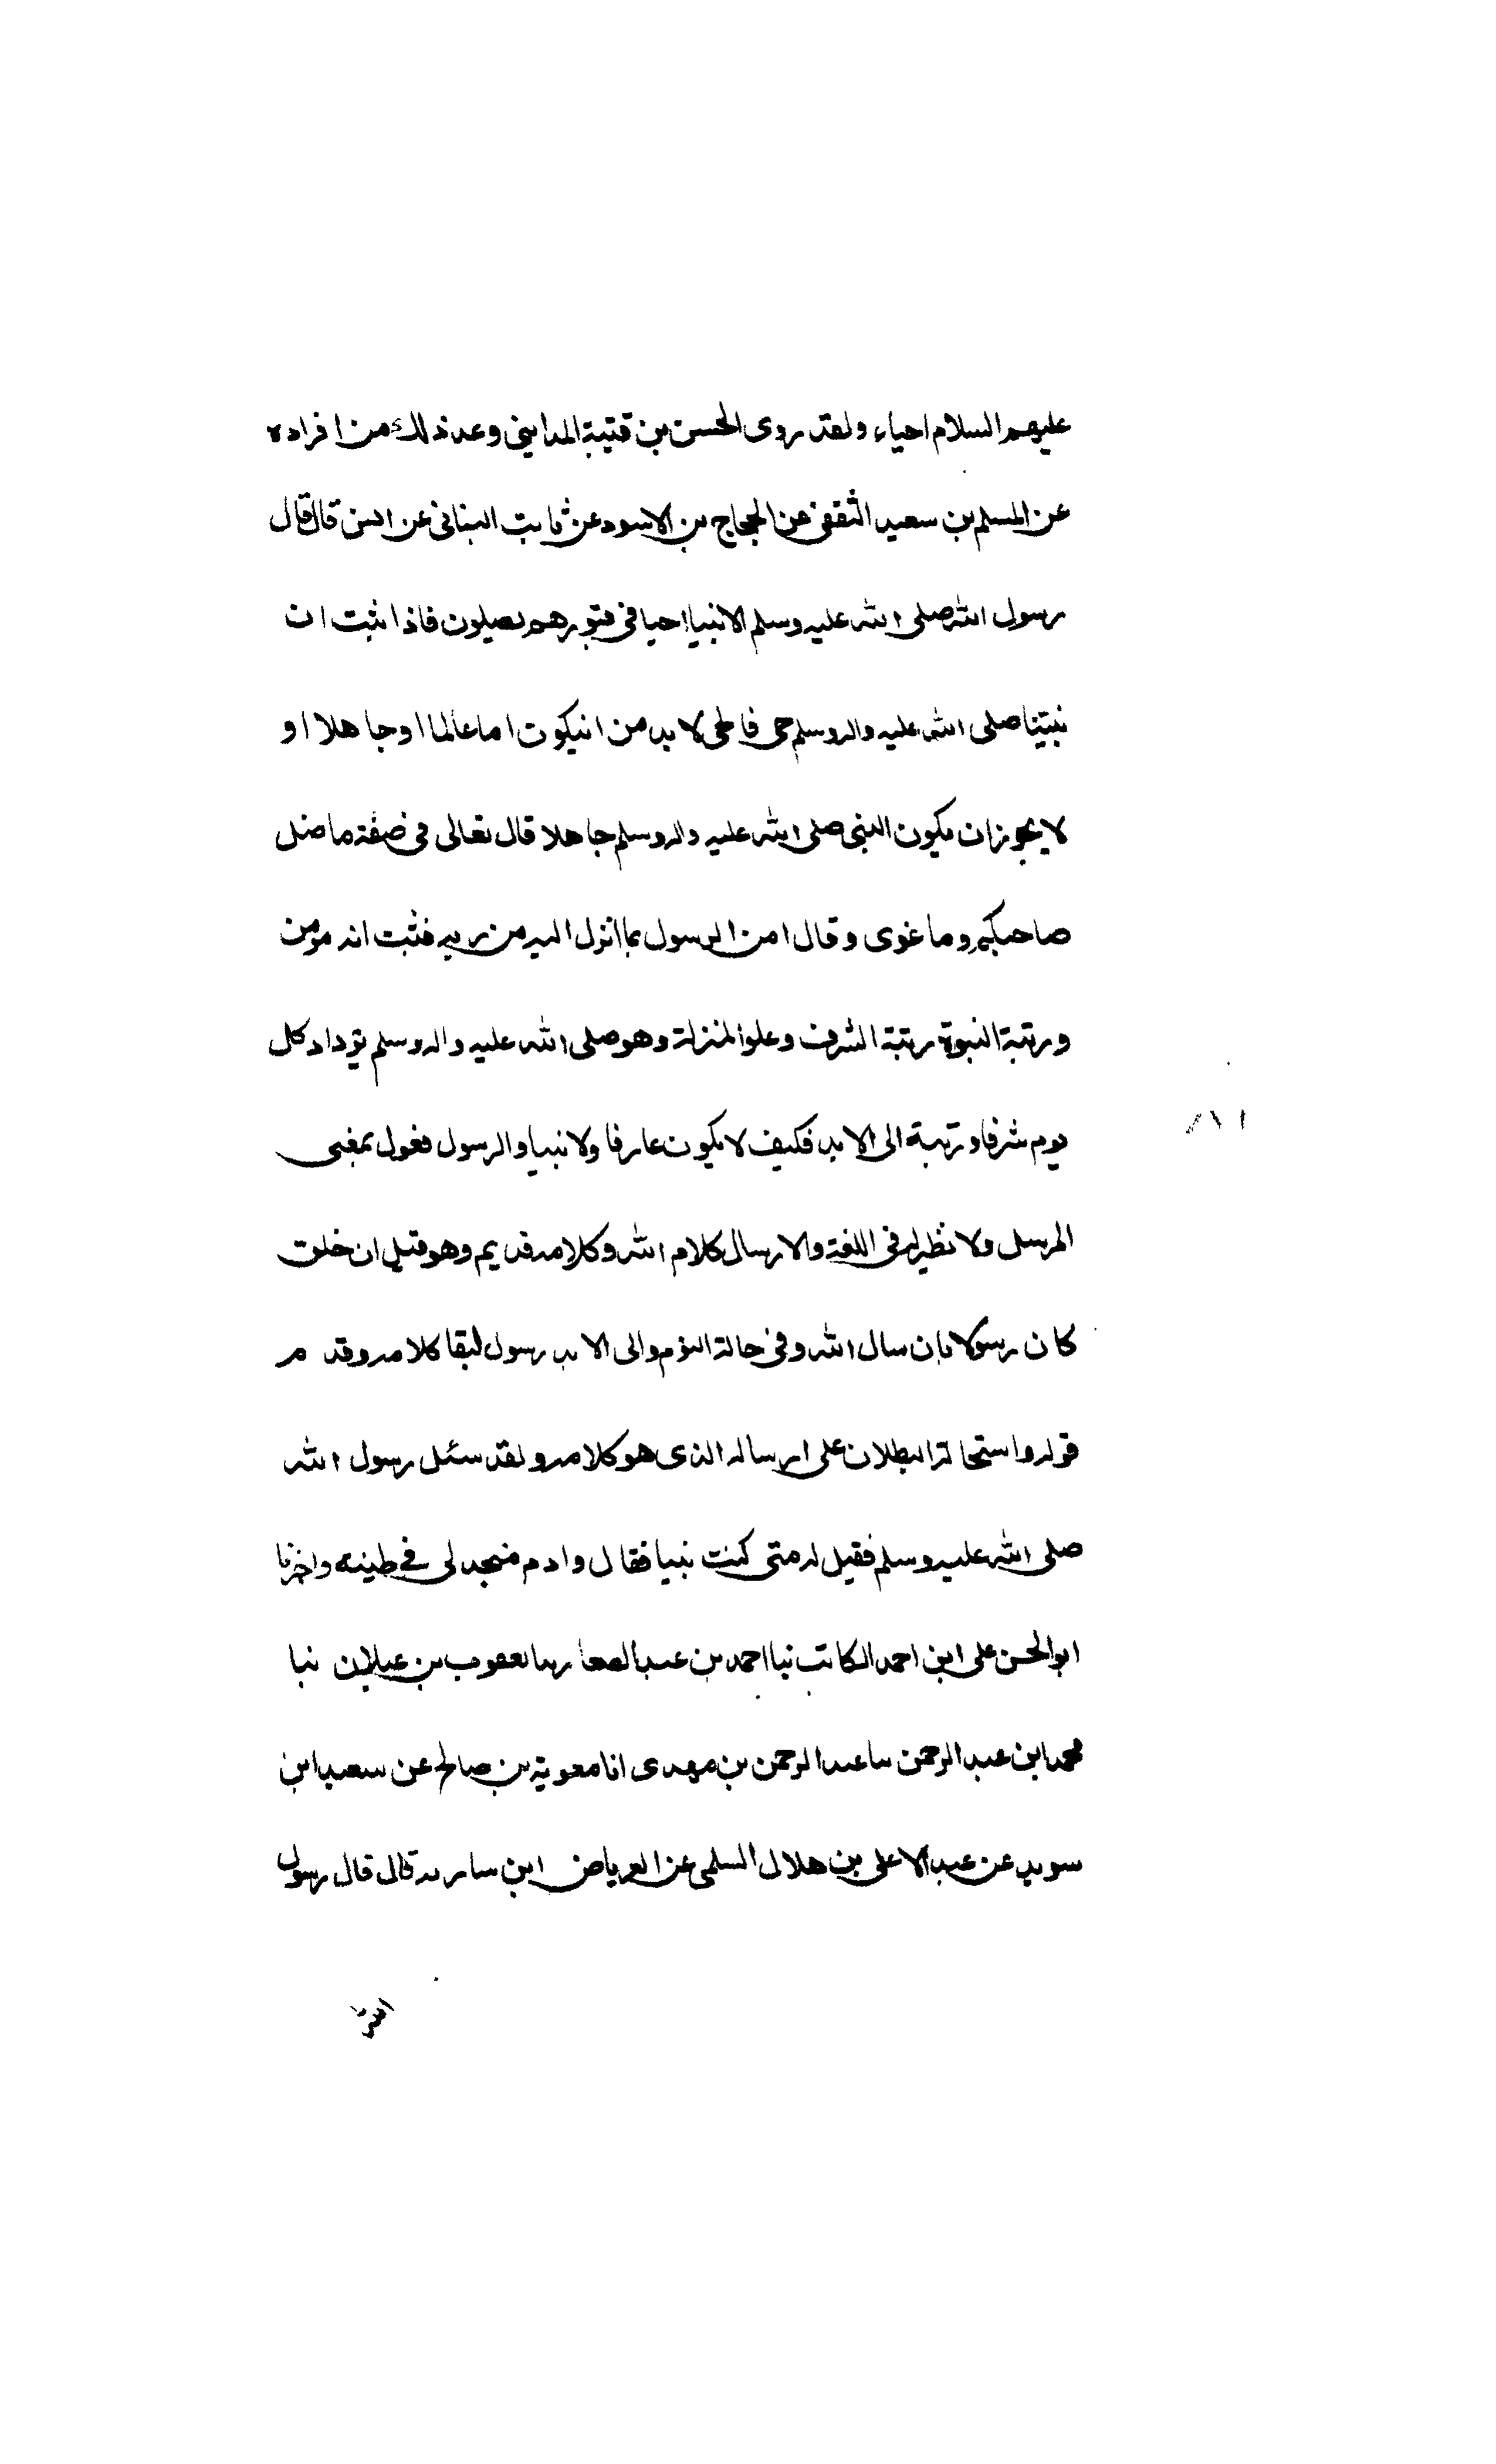 عليهم السلام احياء ولقد روى الحسن بن قتيبة المدايني وعد ذلك من افراده
عن المسلم بن سعيد الثقفى عن الحجاج بن الاسود عن ثابت البنانى عن انس قال قال
رسول الله صلى الله عليه وسلم الانبيا احيا فى قبورهم يصلون فاذا ثبت ان
نبينا صلى الله عليه واله وسلم حى فالحى لا بد من انيكون اما عالما او جاهلا او
لا يجوز ان يكون النبى صلى الله عليه واله وسلم جاهلا قال تعالى فى صفة ما ضل
صاحبكم وما غوى وقال امن الرسول بما انزل اليه من ربه فثبت انه مومن
ورتبة النبوة رتبة الشرف وعلو المنزلة وهو صلى الله عليه واله وسلم يزداد كل
يوم شرفا ورتبة الى الابد فكيف لا يكون عارفا ولا نبيا والرسول فعول بمعنى
المرسل ولا نظير له فى اللغة والارسال كلام الله وكلامه قديم وهو قبل ان خلق
كان رسولا بارسال الله وفى حالة اليوم والى الابد رسول لبقا كلامه وقدم
قوله واستحالة البطلان على ارساله الذى هو كلامه ولقد سئل رسول الله
صلى الله عليه وسلم فقيل له متى كنت نبيا فقال وادم منجدل فى طينه واخبرنا
ابو الحسن على ابن احمد الكاتب نبا احمد بن عبد الصفار يعقوب بن غيلان نبا
محمد ابن عبد الرحمن سا عبد الرحمن بن مهدى انا معوية بن صالح عن سعيد ابن
سويد عن عبد الاعلى بن هلال السلمى عن العرباض ابن سارية قال قال رسول
الله